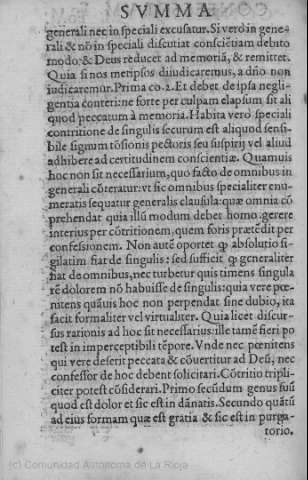 SVMMA
generali nec in speciali excusatur. Si vero in gene-
rali & nō in speciali discutiat consciētiam debito
modo: & Deus reducet ad memoriā, & remittet.
Quia si nos metipsos diiudicaremus, a dño non
iudicaremur. Prima co. 2. Et debet de ipsa negli-
gentia conteri: ne forte per culpam elapsum sit ali
quod peccatum à memoria. Habita vero speciali
contritione de singulis securum est aliquod sensi-
bile signum tōsionis pectoris seu suspirij vel aliud
adhibere ad certitudinem conscientiæ. Quamuis
hoc non sit necessarium, quo facto de omnibus in
generali cōteratur: vt sic omnibus specialiter enu-
meratis sequatur generalis clausula: quæ omnia cō
prehendat quia illū modum debet homo gerere
interius per cōtritionem, quem foris prætēdit per
confessionem. Non autē oportet ꝙ absolutio si-
gilatim fiat de singulis: sed sufficit ꝙ generaliter
fiat de omnibus, nec turbetur quis timens singula
rē dolorem nō habuisse de singulis: quia vere pœ-
nitens quāuis hoc non perpendat sine dubio, ita
facit formaliter vel virtualiter. Quia licet discur-
sus rationis ad hoc sit necessarius: ille tamē fieri po
test in imperceptibili tēpore. Vnde nec pœnitens
qui vere deserit peccata & cōuertitur ad Deū, nec
confessor de hoc debent solicitari. Cōtritio tripli-
citer potest cōsiderari. Primo secūdum genus suū
quod est dolor et sic est in dānatis. Secundo quātū
ad eius formam quæ est gratia & sic est in purga-
torio.
(c) Comunidad Autónoma de La Rioja